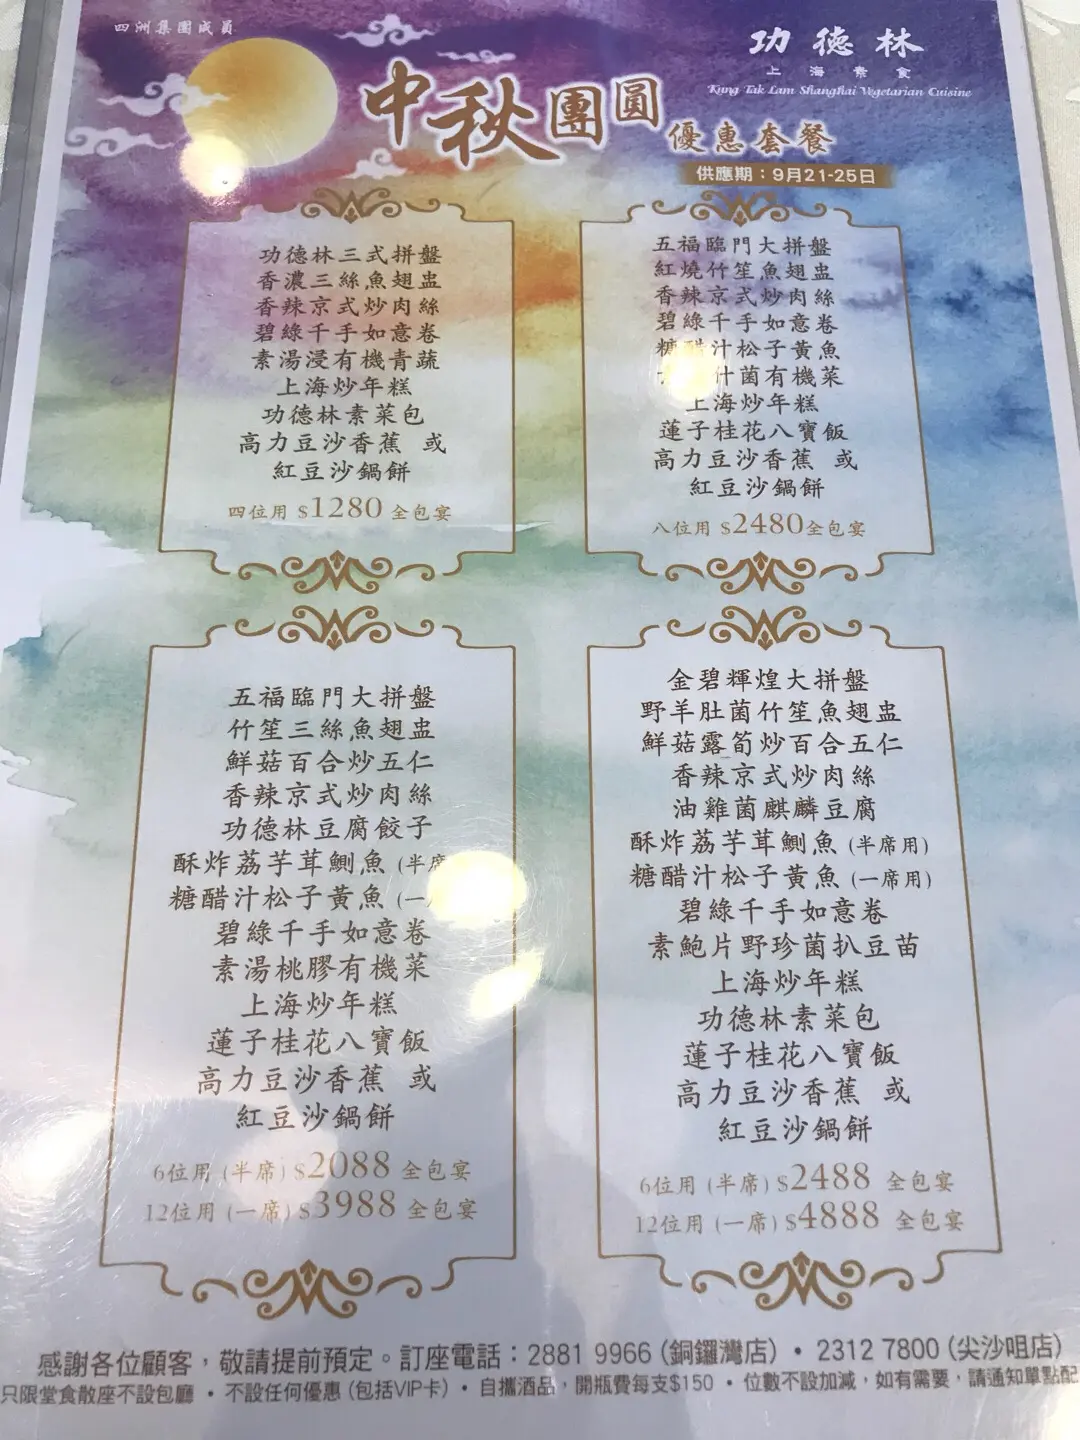 四洲集團成員
功德林
上海素食
Kung Tak Lam Shanghai Vegetarian Cuisine
中秋團圓
優惠套餐
供應期：9月21-25日
功德林三式拼盤
香濃三絲魚翅盅
香辣京式炒肉絲
碧綠千手如意卷
素湯浸有機青蔬
上海炒年糕
功德林素菜包
高力豆沙香蕉 或
紅豆沙鍋餅
四位用 $1280 全包宴
五福臨門大拼盤
紅燒竹笙魚翅盅
香辣京式炒肉絲
碧綠千手如意卷
糖醋汁松子黃魚
什菌有機菜
上海炒年糕
蓮子桂花八寶飯
高力豆沙香蕉 或
紅豆沙鍋餅
八位用 $2480全包宴
五福臨門大拼盤
竹笙三絲魚翅盅
鮮菇百合炒五仁
香辣京式炒肉絲
功德林豆腐餃子
酥炸荔芋茸鰂魚 (半席
糖醋汁松子黃魚 (一
碧綠千手如意卷
素湯桃膠有機菜
上海炒年糕
蓮子桂花八寶飯
高力豆沙香蕉 或
紅豆沙鍋餅
6位用 (半席) $2088 全包宴
12位用 (一席) $3988 全包宴
金碧輝煌大拼盤
野羊肚菌竹笙魚翅盅
鮮菇露筍炒百合五仁
香辣京式炒肉絲
油雞菌麒麟豆腐
酥炸荔芋茸鰂魚 (半席用)
糖醋汁松子黃魚 (一席用)
碧綠千手如意卷
素鮑片野珍菌扒豆苗
上海炒年糕
功德林素菜包
蓮子桂花八寶飯
高力豆沙香蕉 或
紅豆沙鍋餅
6位用 (半席) $2488 全包宴
12位用 (一席) $4888 全包宴
感謝各位顧客，敬請提前預定。訂座電話：2881 9966 (銅鑼灣店) • 2312 7800 (尖沙咀店)
只限堂食散座不設包廳 • 不設任何優惠 (包括VIP卡) • 自攜酒品，開瓶費每支$150 • 位數不設加減，如有需要，請通知單點配